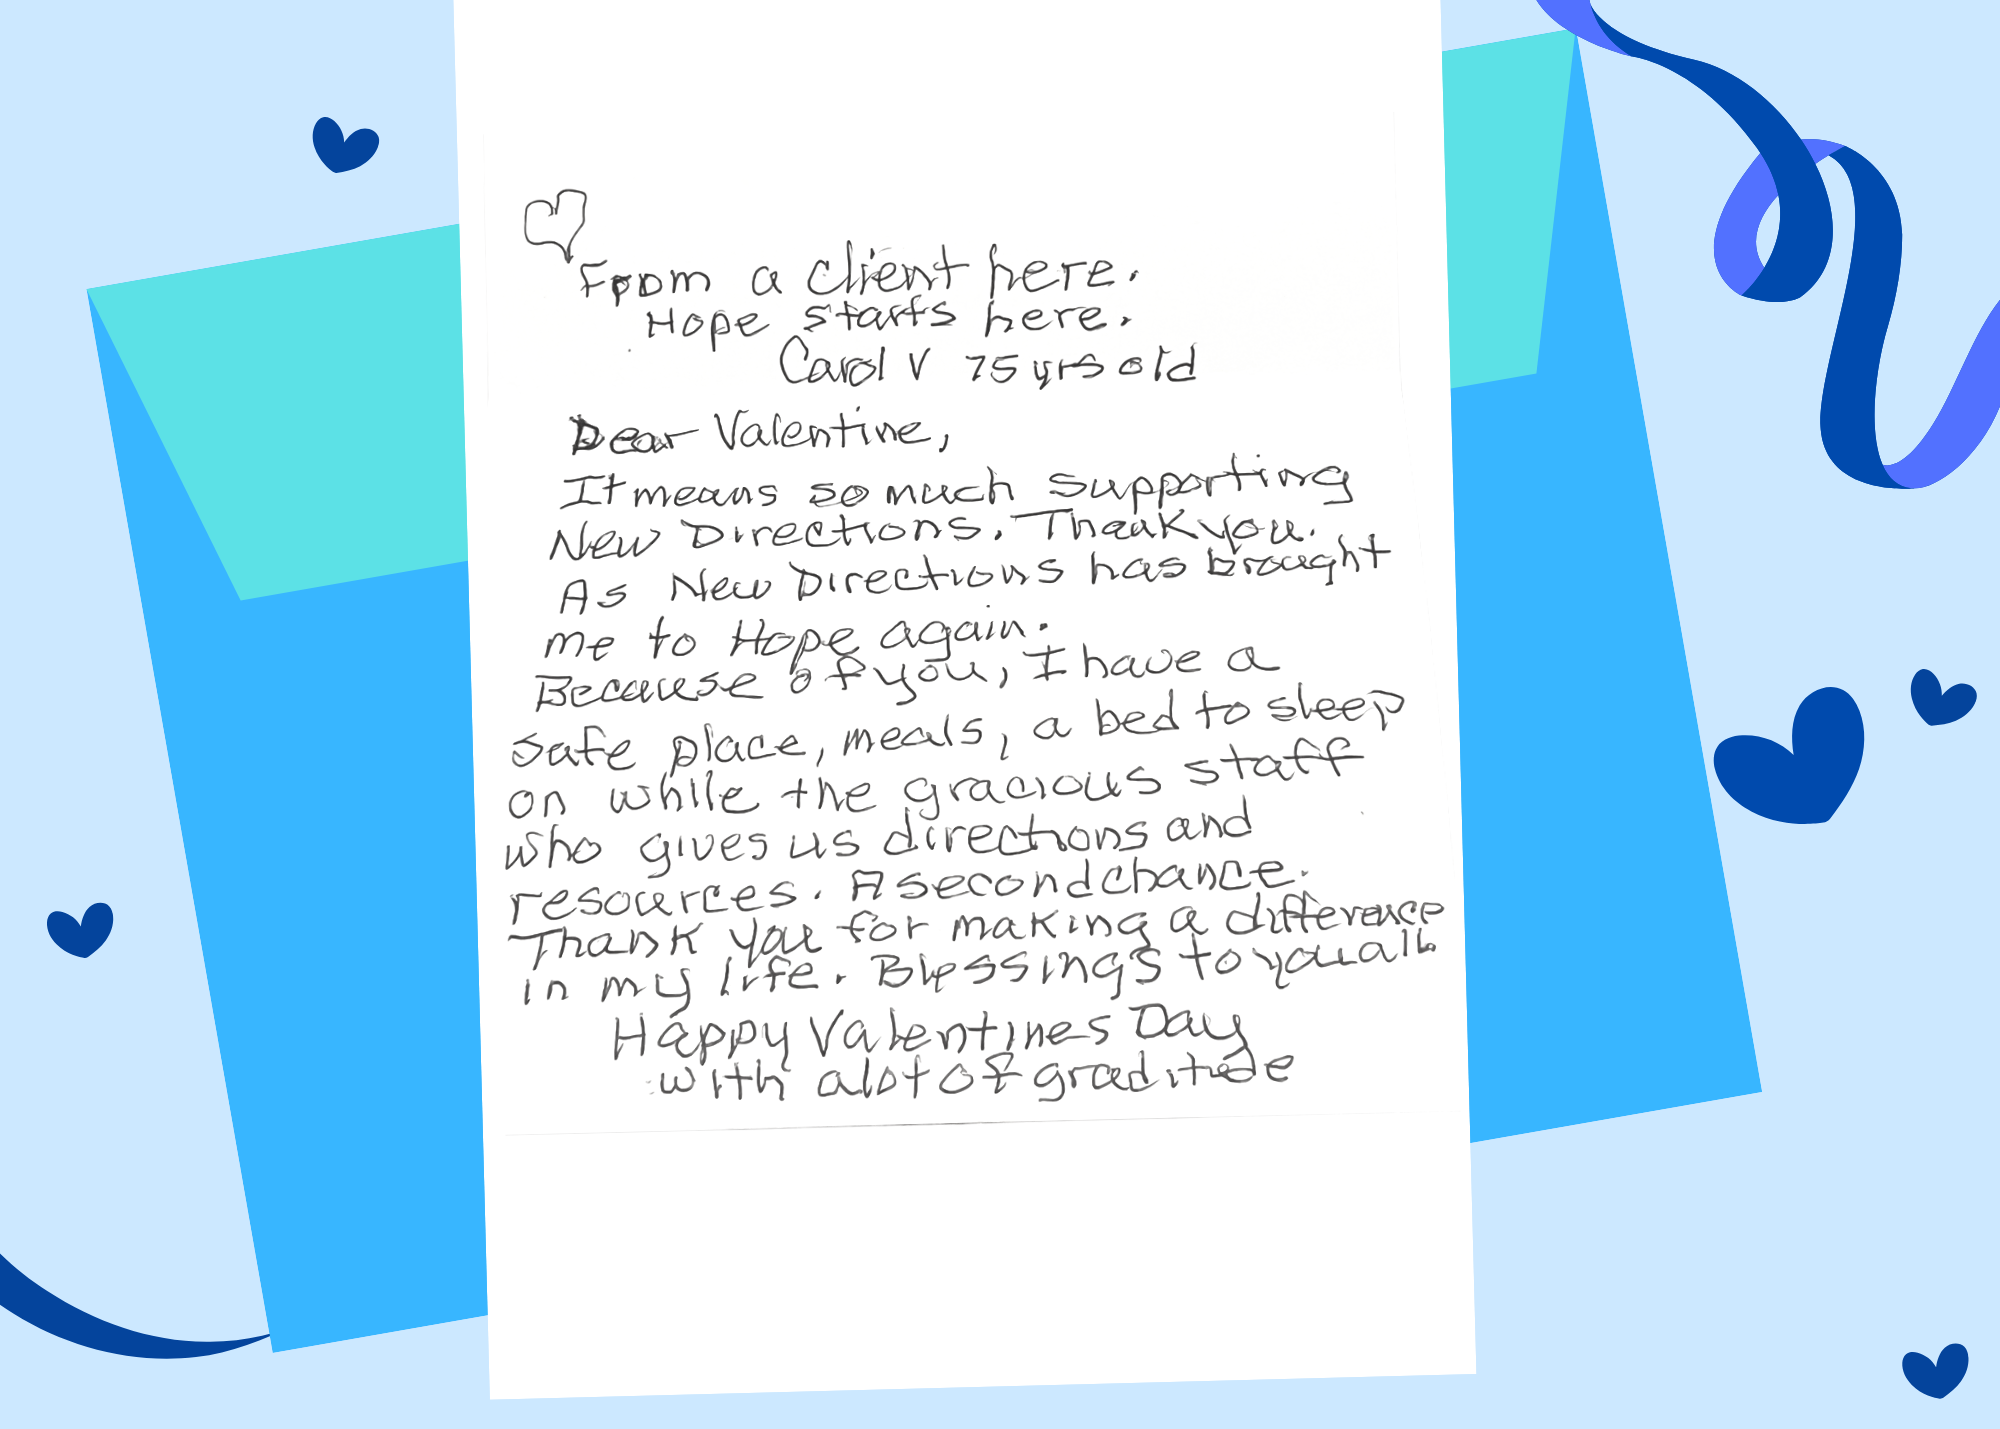 From a client here.
Hope starts here.
Carol V 75 yrs old
Dear Valentine,
It means so much supporting
New Directions. Thank you.
As New Directions has brought
me to Hope again.
Because of you, I have a
safe place, meals, a bed to sleep
on while the gracious staff
who gives us directions and
resources. A second chance.
Thank you for making a difference
in my life. Blessings to you all.
Happy Valentines Day
with alot of graditude